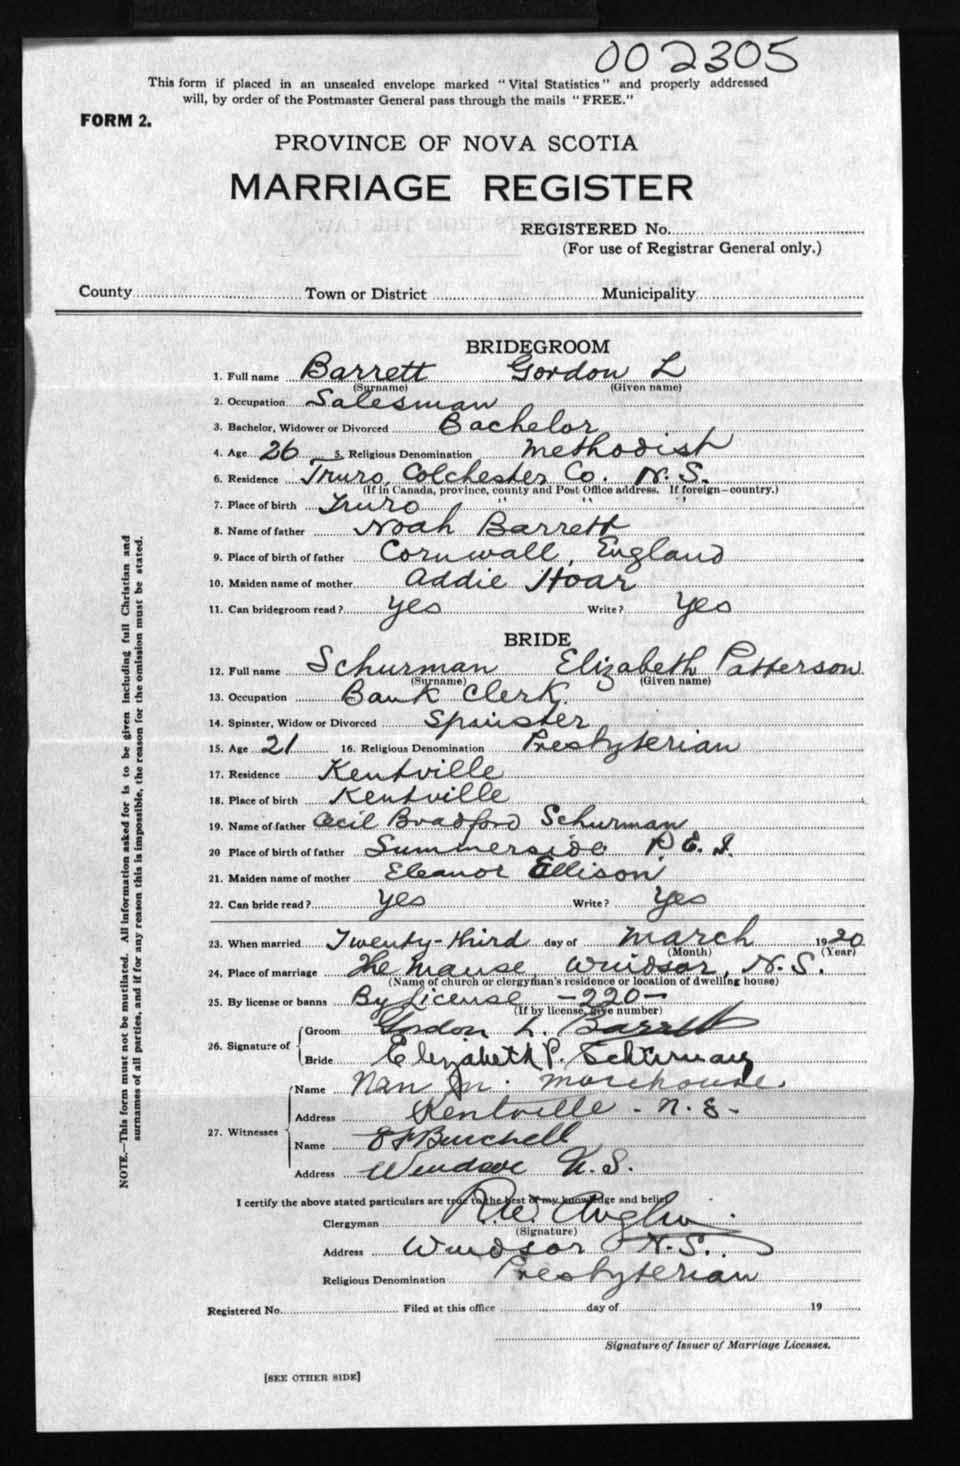 002305
This form if placed in an unsealed envelope marked "Vital Statistics" and properly addressed
will, by order of the Postmaster General pass through the mails "FREE."
FORM 2.
PROVINCE OF NOVA SCOTIA
MARRIAGE REGISTER
REGISTERED No.
(For use of Registrar General only.)
County Town or District Municipality
BRIDEGROOM
1. Full name Barrett Gordon L
(Surname) (Given name)
2. Occupation Salesman
3. Bachelor, Widower or Divorced Bachelor
4. Age 26 5. Religious Denomination Methodist
6. Residence Truro, Colchester Co. N.S.
(If in Canada, province, county and Post Office address. If foreign—country.)
7. Place of birth Truro " " "
8. Name of father Noah Barrett
9. Place of birth of father Cornwall, England
10. Maiden name of mother Addie Hoar
11. Can bridegroom read? Yes Write? Yes
BRIDE
12. Full name Schurman Elizabeth Patterson
(Surname) (Given name)
13. Occupation Bank Clerk
14. Spinster, Widow or Divorced Spinster
15. Age 21 16. Religious Denomination Presbyterian
17. Residence Kentville
18. Place of birth Kentville
19. Name of father Cecil Bradford Schurman
20 Place of birth of father Summerside P.E.I.
21. Maiden name of mother Eleanor Ellison
22. Can bride read? Yes Write? Yes
23. When married Twenty-third day of March 1920
(Month) (Year)
24. Place of marriage The Manse, Windsor, N.S.
(Name of church or clergyman's residence or location of dwelling house)
25. By license or banns By License -220-
(If by license, give number)
26. Signature of
Groom Gordon L. Barrett
Bride Elizabeth P. Schurman
27. Witnesses
Name Nan M. Morehouse.
Address Kentville - N.S-
Name Burchell
Address Windsor N.S.
I certify the above stated particulars are true to the best of my knowledge and belief
Clergyman R.W. Anglin
(Signature)
Address Windsor N.S.
Religious Denomination Presbyterian
Registered No. Filed at this office day of 19
Signature of Issuer of Marriage Licenses.
[SEE OTHER SIDE]
NOTE.—This form must not be mutilated. All information asked for is to be given including full Christian and
surnames of all parties, and if for any reason this is impossible, the reason for the omission must be stated.